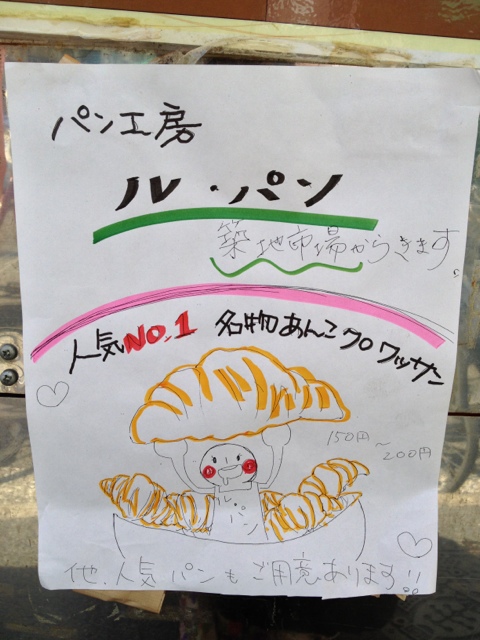 パン工房
ル・パン
築地市場からきます。
人気NO.1 名物あんこクロワッサン
150円～
200円
ル・パン
他、人気パンもご用意あります!!